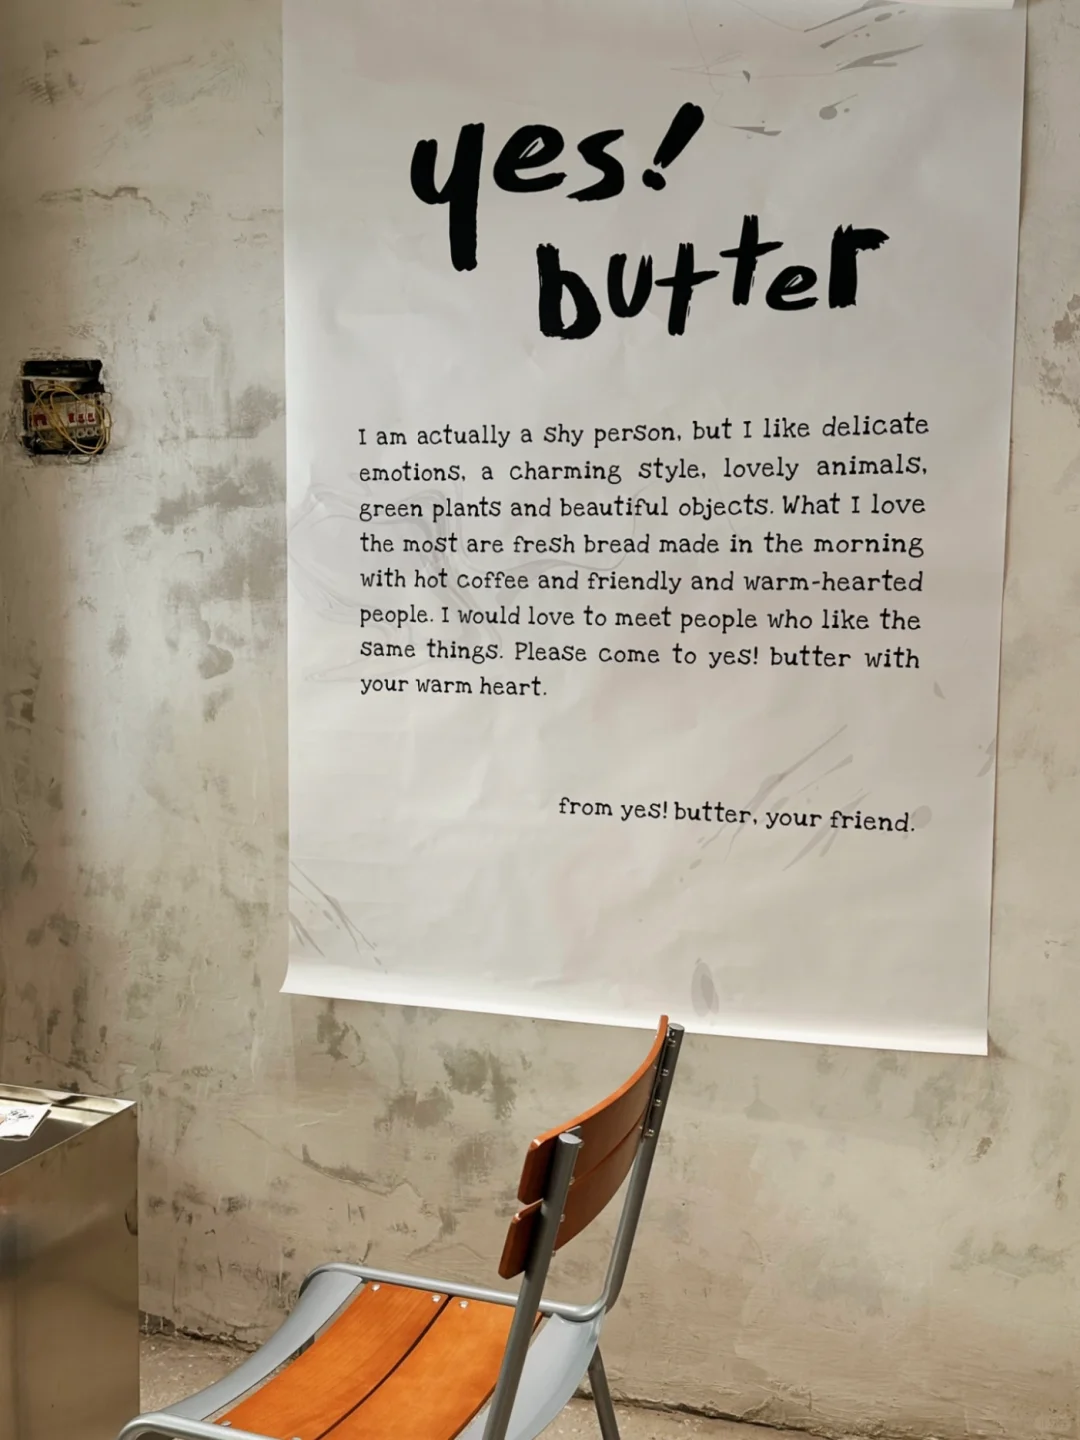 yes!
butter
I am actually a shy person, but I like delicate
emotions, a charming style, lovely animals,
green plants and beautiful objects. What I love
the most are fresh bread made in the morning
with hot coffee and friendly and warm-hearted
people. I would love to meet people who like the
same things. Please come to yes! butter with
your warm heart.
from yes! butter, your friend.